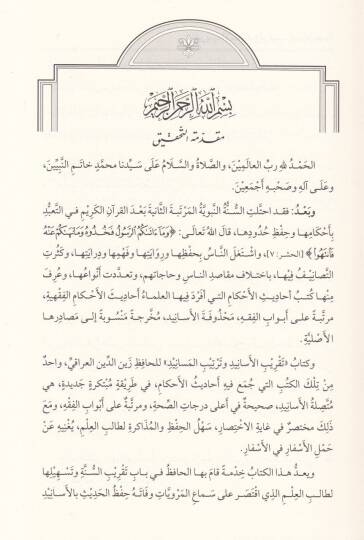 بِسْمِ اللَّهِ الرَّحْمَنِ الرَّحِيمِ
مقدّمة التّحقيق
الحَمْـدُ للهِ ربِّ العالَمِيْنَ، والصَّلاةُ والسَّلامُ عَلَى سَيِّدِنا محمَّدٍ خاتَمِ النَّبِيِّيْنَ،
وعَلَـى آلِهِ وصَحْبِـهِ أَجْمَعِيْنَ.
وبَعْـدُ: فقـد احتلَّتِ السُّـنَّةُ النَّبويَّةُ المَرْتَبـةَ الثَّانيةَ بَعْـدَ القرآنِ الكَرِيْمِ فـي التَّعبُّدِ
بِأَحْكَامِهـا وحِفْظِ حُدُودِهـا، قالَ اللهُ تَعالَـى: ﴿وَمَآ ءَاتَىٰكُمُ ٱلرَّسُولُ فَخُـذُوهُ وَمَانَهَىٰكُمْ عَنْهُ
فَٱنتَهُواْ﴾ [الحشر: ٧]، واشتَغَلَ النَّاسُ بِحِفْظِهـا ورِوَايَتِها وفَهْمِها ودِرايَتِها، وكَثُرَتِ
التَّصانِيْـفُ فِيْهـا، باختـلافِ مقاصدِ النـاسِ وحاجاتِهم، وتعـدَّدت أنْواعُهـا، وعُرِفَ
مِنْهـا كُتـبُ أحاديثِ الأَحْكَامِ التـي أفرَدَ فِيها العلماءُ أحاديـثَ الأحكامِ الفِقْهيـةِ،
مرتَّبـةً علـى أبوابِ الفِقهِ، مَحْذُوفةَ الأَسَانِيدِ، مُخرَّجـةً مَنْسُوبةً إلـى مَصادِرِها
الأَصْليَّةِ.
وكتابُ «تَقْرِيْبِ الأَسَانِيدِ وتَرْتِيْبِ المَسَانِيْدِ» للحافِظِ زَيْنِ الدِّيْنِ العراقيِّ، واحدٌ
مِنْ تِلْكَ الكُتُبِ التي جُمعَ فيهِ أحاديثُ الأحكامِ، في طَرِيْقةٍ مُبْتَكرةٍ جَدِيدةٍ، هي
مُتَّصِلةُ الأَسَانِيدِ، صحيحةٌ في أعلى درجاتِ الصِّحَّةِ، ومرتَّبةٌ على أبْوَابِ الفِقْهِ، ومَعَ
ذلِكَ مختصرٌ في غايةِ الاختِصارِ، سَهْلُ الحِفْظِ والمُذَاكرةِ لطالبِ العِلْمِ، يُغْنِيهِ عَنْ
حَمْلِ الأَسْفَارِ في الأَسْفَارِ.
ويعـدُّ هـذا الكتابُ خِدْمـةً قامَ بهـا الحافظُ فـي بـابِ تَقْرِيْبِ السُّنَّةِ وتَسْهِيْلِها
لطالبِ العِلْمِ الذي اقْتَصَرَ على سماعِ المَرْوِيَّاتِ وفاتَهُ حِفْظُ الحَدِيْثِ بالأَسَانِيدِ